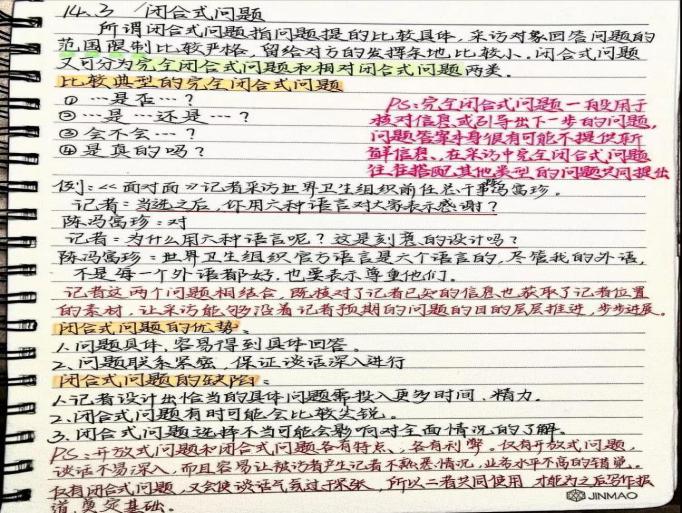 14.3 闭合式问题
所谓闭合式问题指问题提的比较具体，采访对象回答问题的
范围限制比较严格，留给对方的发挥余地比较小。闭合式问题
又可分为完全闭合式问题和相对闭合式问题两类。
比较典型的完全闭合式问题
① …是否…？
② …是…还是…？
③ 会不会…？
④ 是真的吗？
PS：完全闭合式问题一般用于
核对信息或引导出下一步的问题，
问题答案本身很有可能不提供新
鲜信息、在采访中完全闭合式问题
往往搭配其他类型的问题共同提出
例：《面对面》记者采访世界卫生组织前任总干事冯富珍。
记者：当选之后，你用六种语言对大家表示感谢？
陈冯富珍：对
记者：为什么用六种语言呢？这是刻意的设计吗？
陈冯富珍：世界卫生组织官方语言是六个语言的，尽管我的外语，
不是每一个外语都好，也要表示尊重他们。
记者这两个问题相结合，既核对了记者已知的信息也获取了记者位置
的素材，让采访能够沿着记者预期的问题的目的层层推进，步步进展。
闭合式问题的优势。
1、问题具体，容易得到具体回答。
2、问题联系紧密，保证谈话深入进行
闭合式问题的缺陷：
1、记者设计出恰当的具体问题需投入更多时间、精力。
2、闭合式问题有时可能会比较尖锐。
3、闭合式问题选择不当可能会影响对全面情况的了解。
PS：开放式问题和闭合式问题各有特点、各有利弊。仅有开放式问题，
谈话不易深入，而且容易让被访者产生记者不熟悉情况，业务水平不高的错觉。
仅有闭合式问题，又会使谈话气氛过于紧张，所以二者共同使用，才能为之后写作报
道，奠定基础。
JINMAO